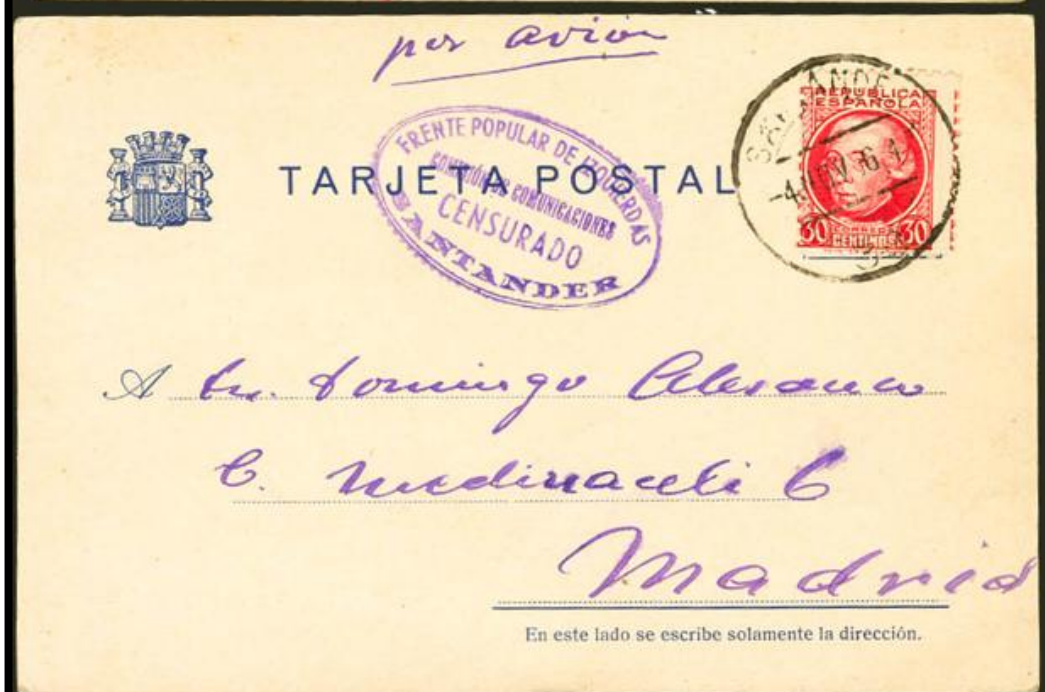 por avión
TARJETA POSTAL
FRENTE POPULAR DE IZQUIERDAS
COMISIÓN DE COMUNICACIONES
CENSURADO
SANTANDER
SANTANDER
REPUBLICA
ESPAÑOLA
30 CORREOS 30
CENTIMOS
A Sr. Domingo
C. Medinaceli 6
Madrid
En este lado se escribe solamente la dirección.